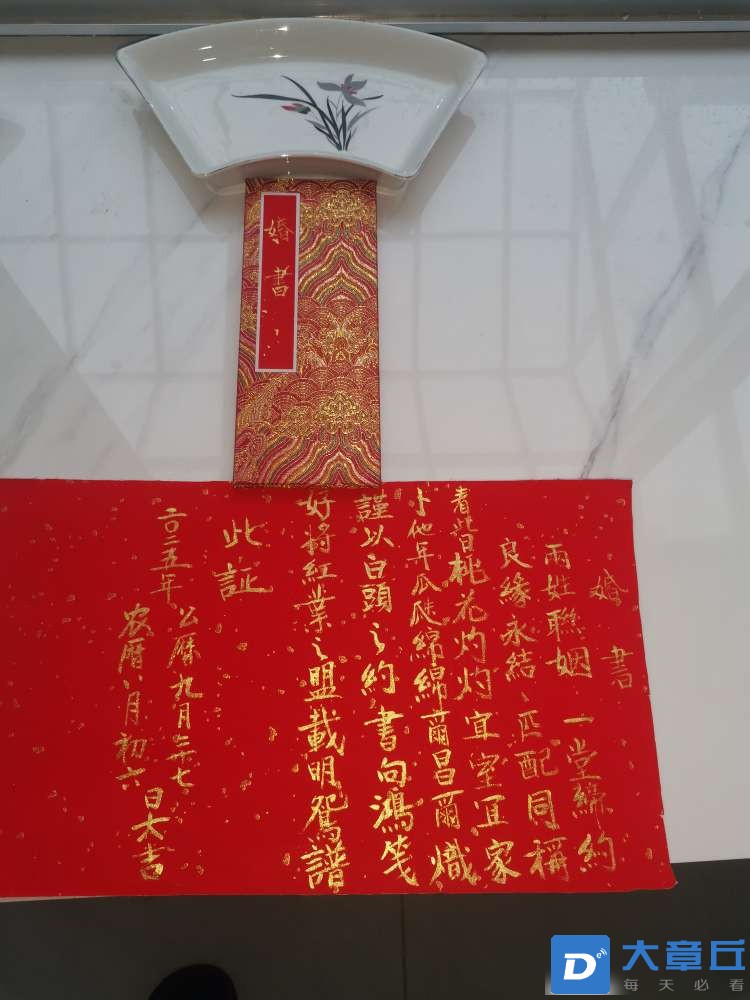 婚書
婚書
兩姓聯姻 一堂締約
良緣永結、匹配同稱
看此日桃花灼灼宜室宜家
卜他年瓜瓞綿綿爾昌爾熾
謹以白頭之約書向鴻箋
好将紅葉之盟載明鴛譜
此証
二〇二五年 公曆九月二十七
农曆八月初六 日大吉
大章丘
每天必看